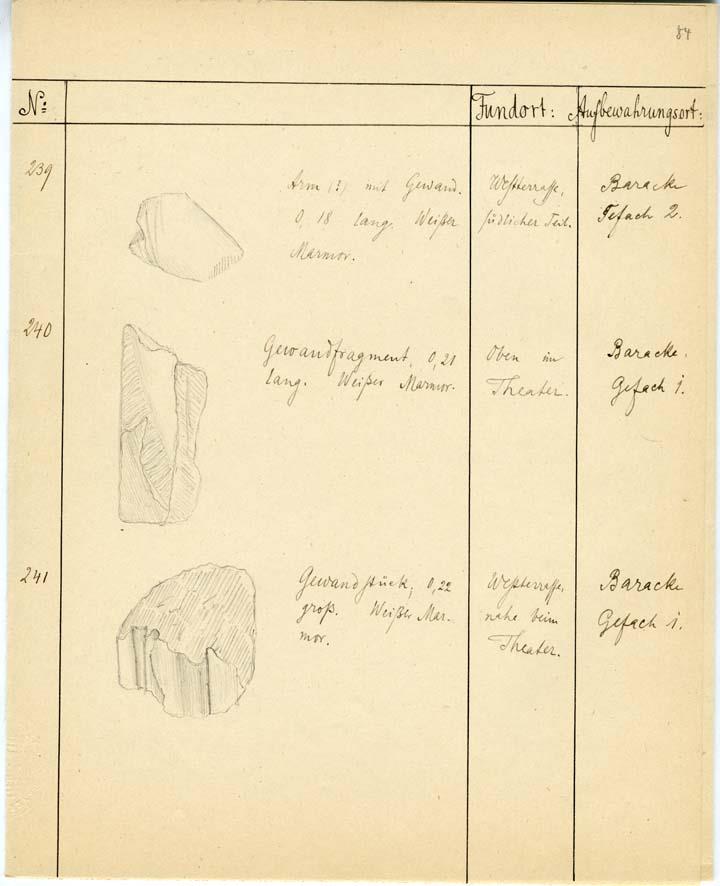 84
N°:
Fundort:
Aufbewahrungsort:
239
Arm (?) mit Gewand.
0,18 lang. Weißer
Marmor.
Westterrasse,
südlicher Teil.
Baracke
Gefach 2.
240
Gewandfragment, 0,21
lang. Weißer Marmor.
Oben im
Theater.
Baracke.
Gefach 1.
241
Gewandstück, 0,22
groß. Weißer Mar-
mor.
Westterrasse,
nahe beim
Theater.
Baracke
Gefach 1.